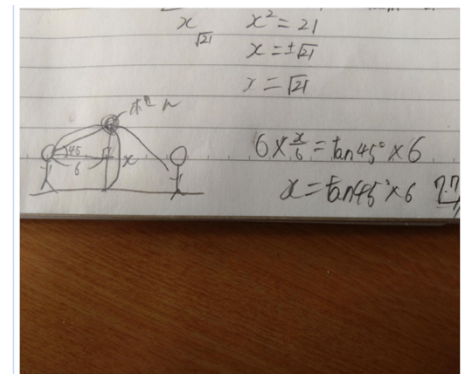 x
√21
x² = 21
x = ±√21
x = √21
ボール
45
6
x
6 × x/6 = tan45° × 6
x = tan45° × 6 7.7